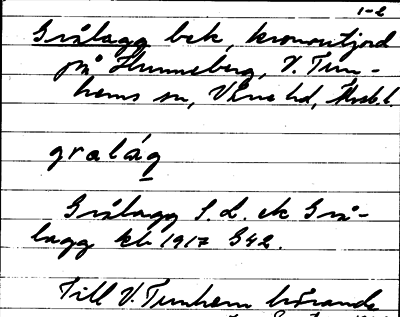 1-2
Grålagg bek, kronoutjord
på Hunneberg, V. Tun-
hems sn, Väne hd, Älvsb. l.
gralág
Grålagg S. d. ek Grå-
lagg kb 1917 G42.
Till V. Tunhem hörande